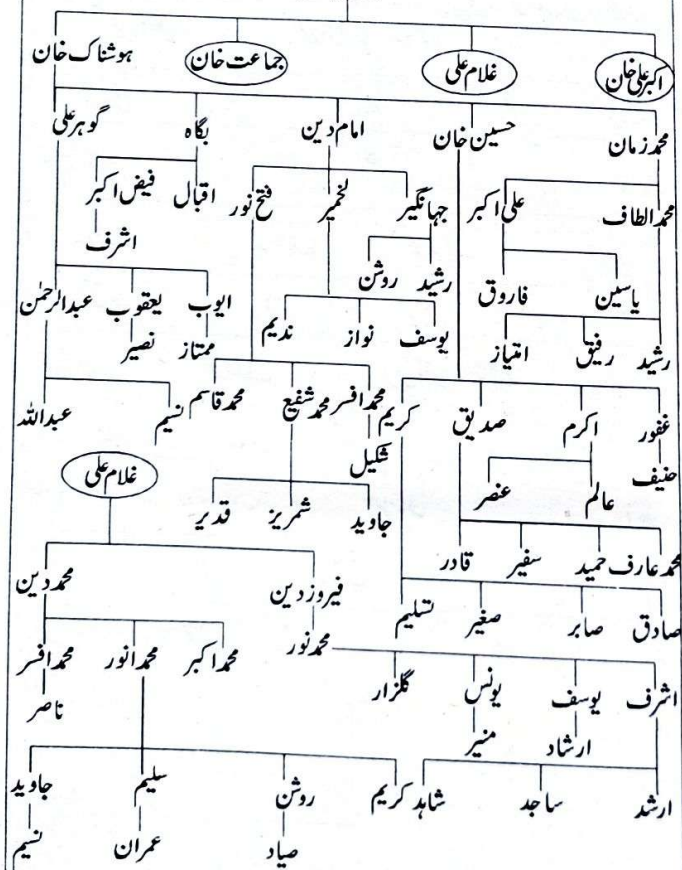 اکبر علی خان غلام علی جماعت خان ہوشناک خان
محمد زمان حسین خان امام دین بگاہ گوہر علی
محمد الطاف علی اکبر جہانگیر لخمیر فتح نور اقبال فیض اکبر
اشرف
یاسین فاروق رشید روشن ایوب یعقوب عبدالرحمٰن
رشید رفیق امتیاز یوسف نواز ندیم ممتاز نصیر
غفور اکرم صدیق کریم محمد افسر محمد شفیع محمد قاسم نسیم عبداللہ
حنیف عالم عنصر شکیل
غلام علی
جاوید شمریز قدیر
محمد عارف حمید سفیر قادر فیروز دین محمد دین
صادق صابر صغیر تسلیم محمد نور محمد اکبر محمد انور محمد افسر
اشرف یوسف یونس گلزار ناصر
ارشاد منیر
ارشد ساجد شاہد کریم روشن سلیم جاوید
صیاد عمران نسیم